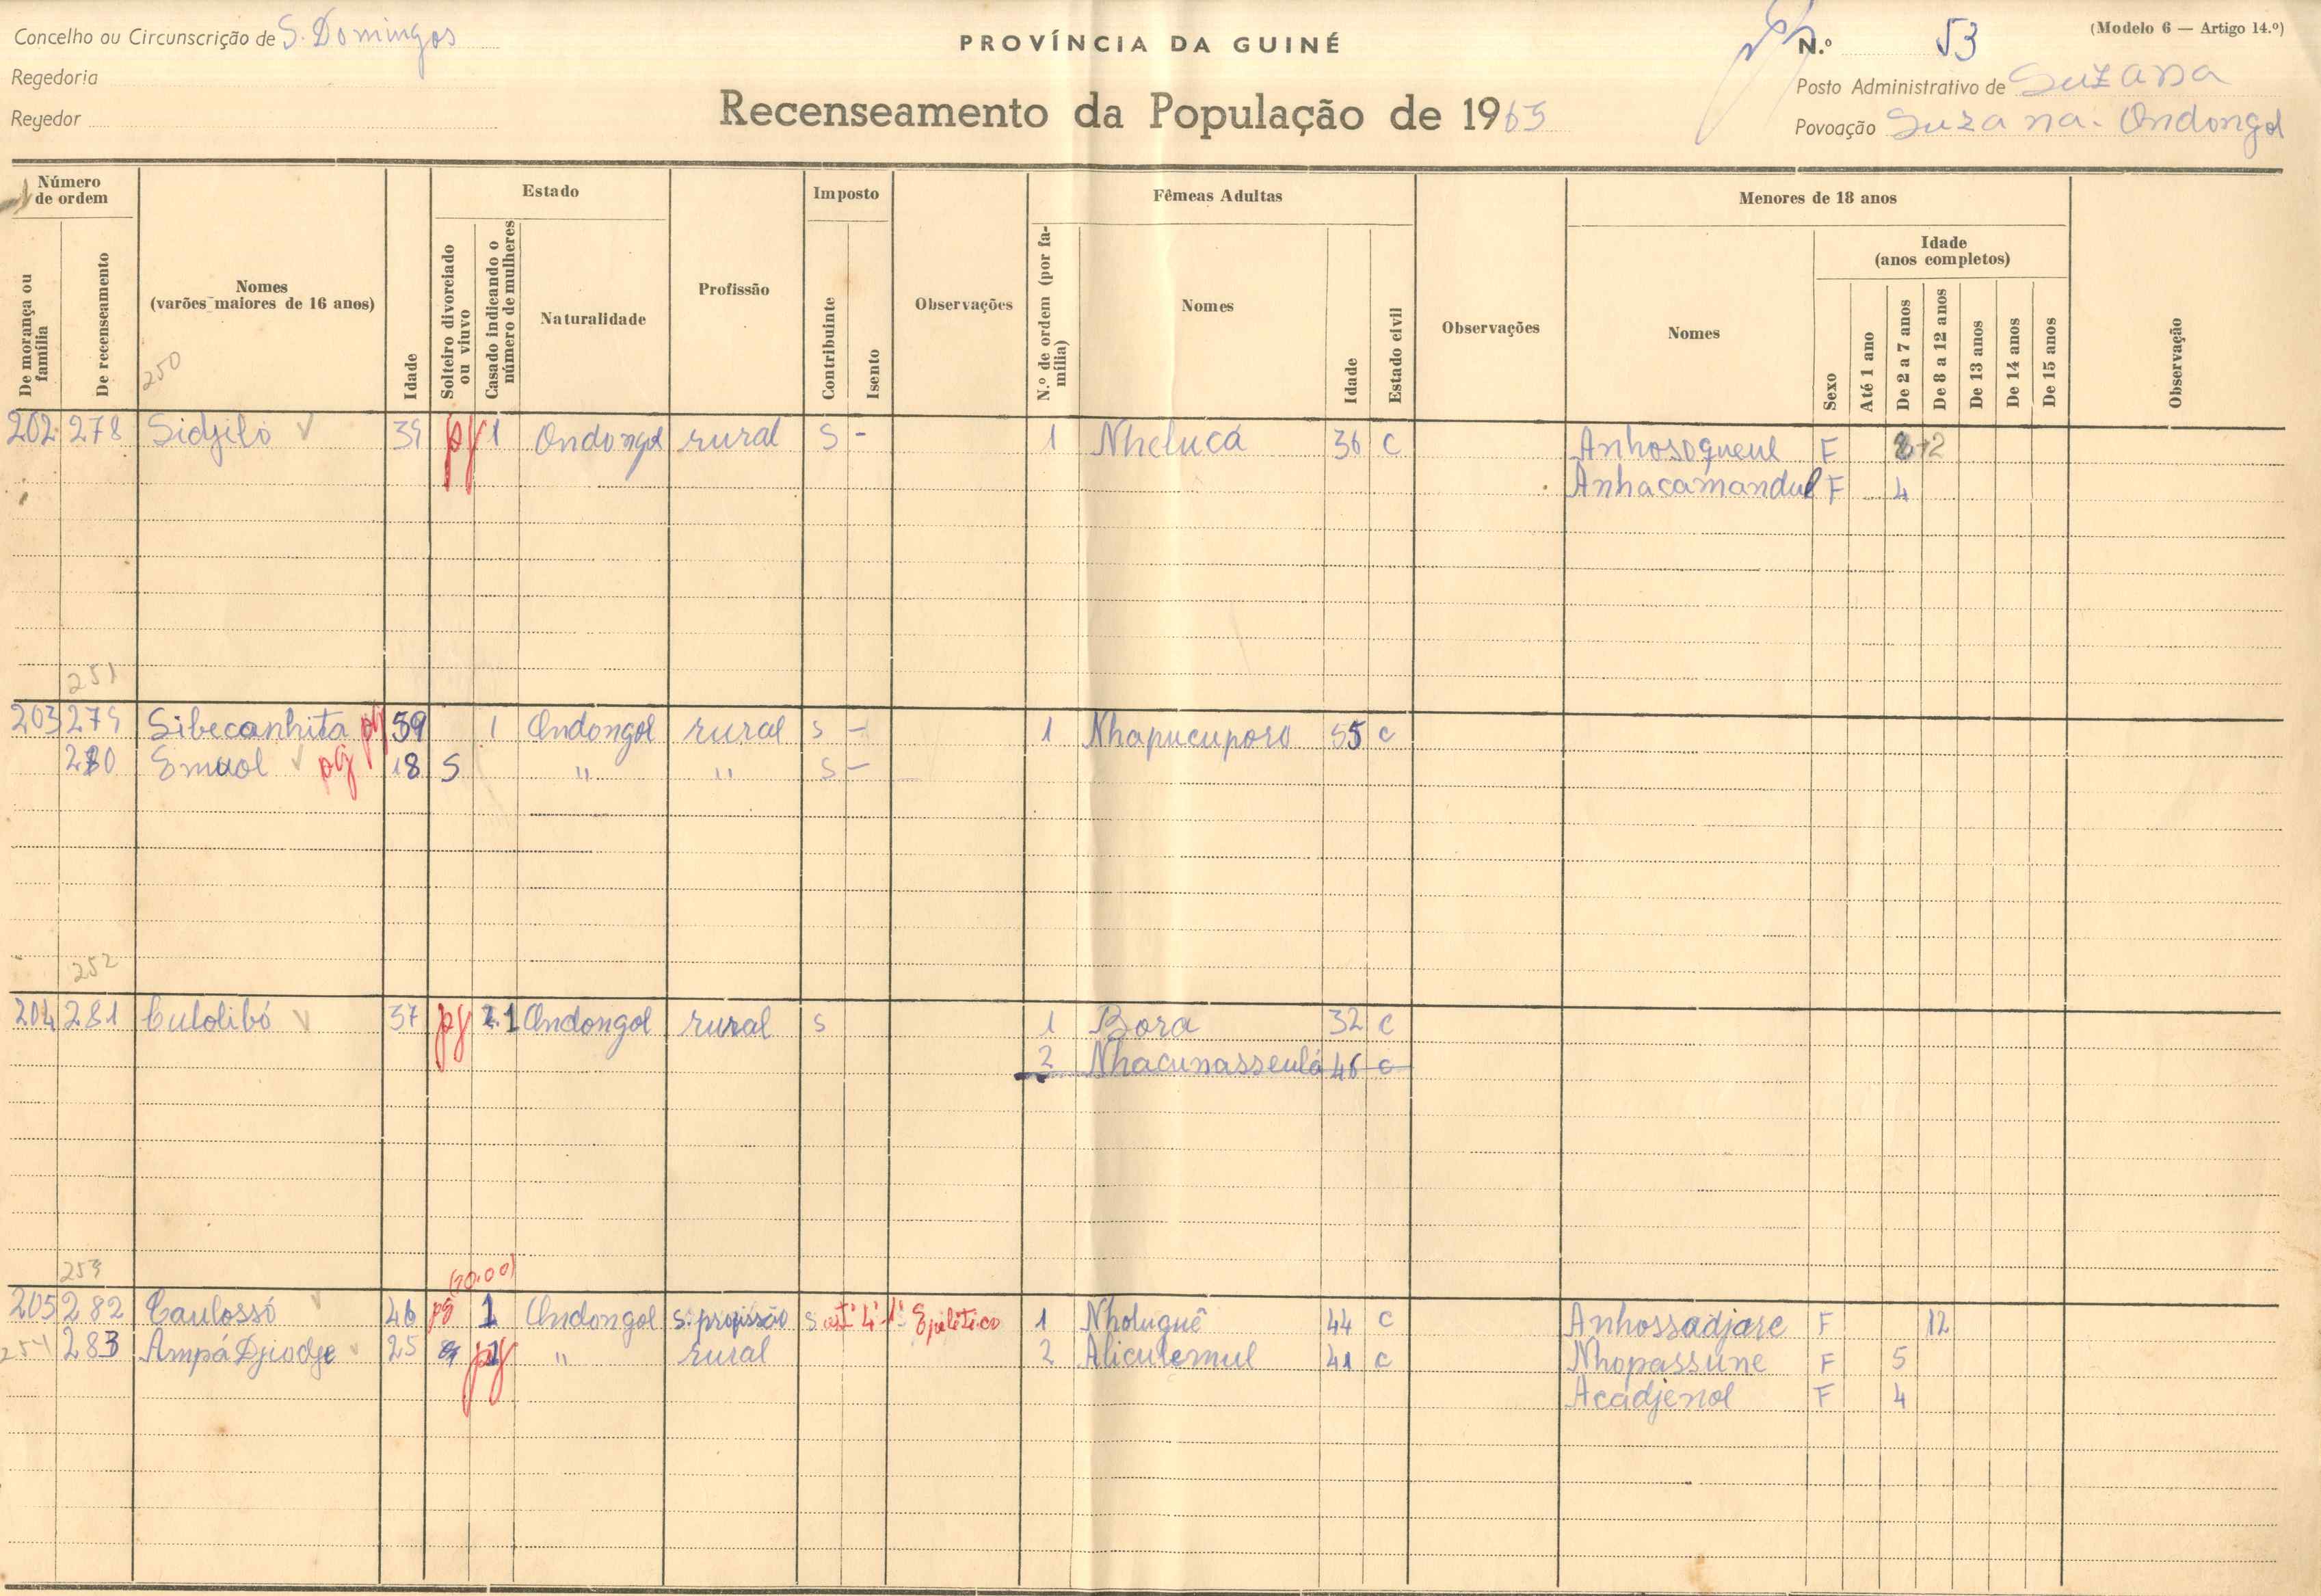 Concelho ou Circunscrição de S. Domingos
PROVÍNCIA DA GUINÉ
N.º 53
(Modelo 6 — Artigo 14.º)
Regedoria
Posto Administrativo de Suzana
Regedor
Recenseamento da População de 1965
Povoação Suzana - Ondongol
Número de ordem
Estado
Imposto
Fêmeas Adultas
Menores de 18 anos
De morança ou família
De recenseamento
Nomes (varões maiores de 16 anos)
Idade
Solteiro divorciado ou viuvo
Casado indicando o número de mulheres
Naturalidade
Profissão
Contribuinte
Isento
Observações
N.º de ordem (por família)
Nomes
Idade
Estado civil
Observações
Nomes
Sexo
Idade (anos completos)
Até 1 ano
De 2 a 7 anos
De 8 a 12 anos
De 13 anos
De 14 anos
De 15 anos
Observação
250
202 278 Sidjiló 39 pg 1 Ondongol rural S - 1 Nhelucá 36 C Anhosoqueul F
Anhacamandul F 4
251
203 279 Sibecanhita pg 59 1 Ondongol rural S - 1 Nhapucuporo 55 C
280 Emuol pg 18 S " " S -
252
204 281 Culolibó 37 pg 1 Ondongol rural S 1 Bora 32 C
2 Nhacunasseulá 46 C
253
(70.00)
205 282 Caulossó 46 pg 1 Ondongol S. profissão S Epilético 1 Nholuguê 44 C Anhossadjare F 12
254 283 Ampá Djiodje 25 pg " rural 2 Aliculemul 41 C Nhopassune F 5
Acadjenol F 4